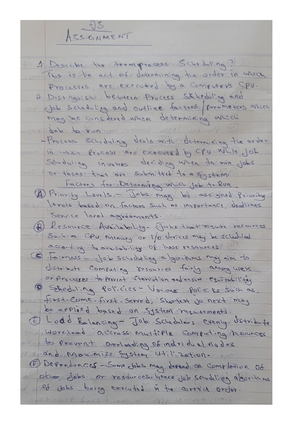 OS
ASSIGNMENT
1 Describe the term process Scheduling?
This is the act of determining the order in which
Processes are executed by a Computers CPU.
2. Distinguish between Process Scheduling and
job Scheduling and outline factors/parameters which
may be considered when determining which
Job to run
- Process Scheduling deals with determining the order
in which process are executed by CPU while job
Scheduling involves deciding when to run jobs
or tasks that are submitted to a system.
Factors for Determining which Job to Run
(A) Priority Levels - Jobs may be assigned Priority
levels based on factors such as importance, deadlines
Service level agreements.
(B) Resource Availability - Jobs that require resources
Such as CPU, memory or I/O devices may be scheduled
according to availability of those resources.
(C) Fairness - job Scheduling algorithms may aim to
distribute Computing resources fairly among users
or processes to prevent starvation and ensure
(D) Scheduling Policies - Various Policies Such as
first-come-first-served, shortest job next may
be applied based on System requirements.
(E) Load Balancing - Job Schedulers evenly distribute
workload across multiple Computing resources
to prevent overloading of individual nodes
and maximize System utilization.
(F) Dependencies - Some jobs may depend on completion of
other jobs or resources job scheduling algorithms
of jobs being executed in the correct order.